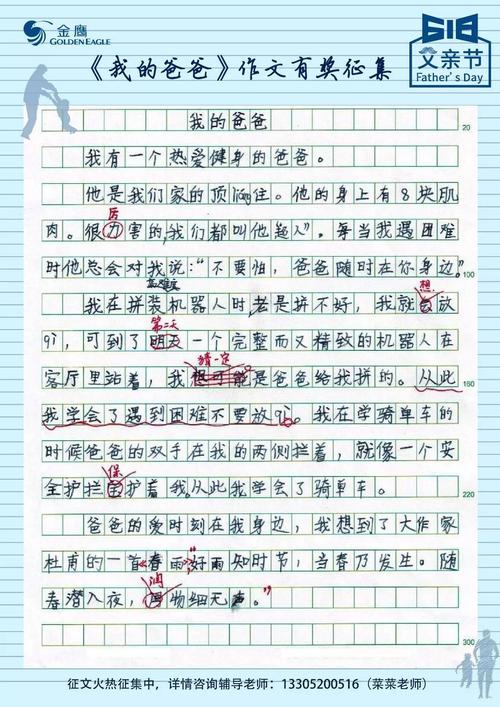 金鹰
GOLDENEAGLE
618
父亲节
Father's Day
《我的爸爸》作文有奖征集
我的爸爸
20
我有一个热爱健身的爸爸。
他是我们家的顶梁柱。他的身上有8块肌
厉
肉。很力害的,我们都叫他超人"。每当我遇困难
时他总会对我说:"不要怕,爸爸随时在你身边."
100
高难度
想
我在拼装机器人时老是拼不好,我就会放
第二天
弃,可到了明天一个完整而又精致的机器人在
猜一定
客厅里站着,我想可能是爸爸给我拼的。从此
150
我学会了遇到困难不要放弃。我在学骑单车的
时候爸爸的双手在我的两侧拦着,就像一个安
保
全护拦护着我.从此我学会了骑单车。
220
爸爸的爱时刻在我身边,我想到了大作家
杜甫的一首春雨"好雨知时节,当春乃发生。随
润
春潜入夜,物细无声。"
300
征文火热征集中,详情咨询辅导老师:13305200516(菜菜老师)